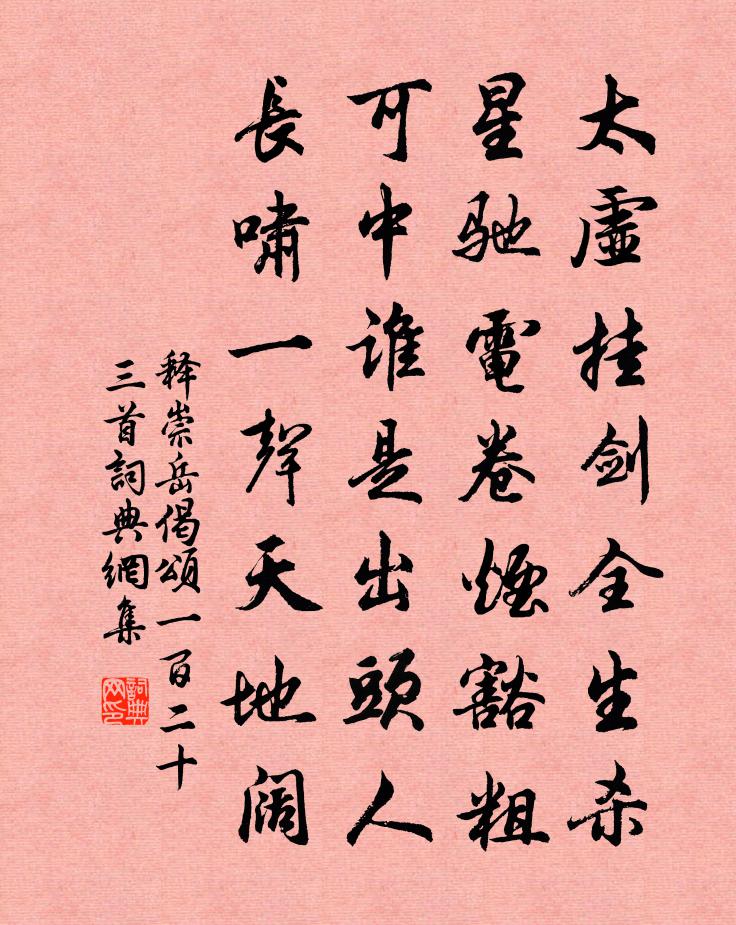 太虛挂剑全生杀
星驰電卷煙豁粗
可中誰是出頭人
長嘯一聲天地阔
释崇岳偈頌一百二十
三首詞典網集
詞典
网印